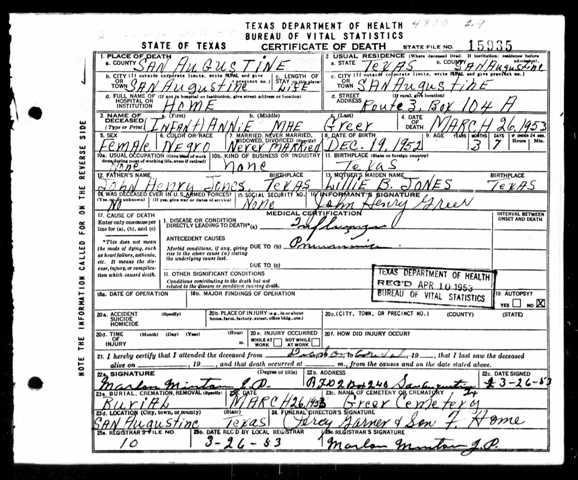 TEXAS DEPARTMENT OF HEALTH
BUREAU OF VITAL STATISTICS
STATE OF TEXAS CERTIFICATE OF DEATH STATE FILE NO. 15935
NOTE THE INFORMATION CALLED FOR ON THE REVERSE SIDE
1. PLACE OF DEATH
a. COUNTY SAN AUGUSTINE
2. USUAL RESIDENCE (Where deceased lived. If institution: residence before admission)
a. STATE TEXAS b. COUNTY SAN AUGUSTINE
b. CITY (If outside corporate limits, write RURAL and give precinct no.) OR TOWN SAN Augustine
c. LENGTH OF STAY LIFE
c. CITY (If outside corporate limits, write RURAL and give precinct no.) OR TOWN SAN Augustine
d. FULL NAME OF (If not in hospital or institution, give street address or location) HOSPITAL OR INSTITUTION HOME
d. STREET ADDRESS (If rural, give location) Route 3, Box 104 A
3. NAME OF DECEASED (Type or Print) (a. First) (INFANT) ANNIE b. (Middle) MAE c. (Last) Greer
4. DATE OF DEATH MARCH 26, 1953
5. SEX Female
6. COLOR OR RACE Negro
7. MARRIED, NEVER MARRIED, WIDOWED, DIVORCED (Specify) Never Married
8. DATE OF BIRTH Dec. 19, 1952
9. AGE YEARS MONTHS 3 DAYS 7 Hours Min.
10a. USUAL OCCUPATION (Give kind of work done during most of working life, even if retired) None
10b. KIND OF BUSINESS OR INDUSTRY None
11. BIRTHPLACE (State or foreign country) Texas
12. FATHER'S NAME BIRTHPLACE John Henry Jones, TEXAS
13. MOTHER'S MAIDEN NAME BIRTHPLACE LILLIE B. JONES TEXAS
14. WAS DECEASED EVER IN U.S. ARMED FORCES? (Yes, no, or unknown) (If yes, give war or dates of service) No
15. SOCIAL SECURITY NO. None
16. INFORMANT'S SIGNATURE John Henry Greer
MEDICAL CERTIFICATION
INTERVAL BETWEEN ONSET AND DEATH
17. CAUSE OF DEATH
Enter only one cause per line for (a), (b), and (c)
*This does not mean the mode of dying, such as heart failure, asthenia, etc. It means the disease, injury, or complication which caused death.
I. DISEASE OR CONDITION DIRECTLY LEADING TO DEATH* (a) Influenza
ANTECEDENT CAUSES
Morbid conditions, if any, giving rise to the above cause (a) stating the underlying cause last.
DUE TO (b) Pneumonia
DUE TO (c)
II. OTHER SIGNIFICANT CONDITIONS
Conditions contributing to the death but not related to the disease or condition causing death.
TEXAS DEPARTMENT OF HEALTH
REC'D APR 10 1953
BUREAU OF VITAL STATISTICS
18a. DATE OF OPERATION
18b. MAJOR FINDINGS OF OPERATION
19. AUTOPSY? YES NO X
20a. ACCIDENT SUICIDE HOMICIDE (Specify)
20b. PLACE OF INJURY (e.g., in or about home, farm, factory, street, office bldg., etc.)
20c. (CITY, TOWN, OR PRECINCT NO.) (COUNTY) (STATE)
20d. TIME OF INJURY (Month) (Day) (Year) (Hour)
20e. INJURY OCCURRED WHILE AT WORK NOT WHILE AT WORK
20f. HOW DID INJURY OCCUR?
21. I hereby certify that I attended the deceased from 19 , to 19 , that I last saw the deceased
alive on , 19 , and that death occurred at m., from the causes and on the date stated above.
22a. SIGNATURE (Degree or title) Marlon Minton J.P.
22b. ADDRESS San Augustine
22c. DATE SIGNED 3-26-53
23a. BURIAL, CREMATION, REMOVAL (Specify) BURIAL
23b. DATE MARCH 26, 1953
23c. NAME OF CEMETERY OR CREMATORY Greer Cemetery
23d. LOCATION (City, town, or county) (State) SAN AUGUSTINE Texas
24. FUNERAL DIRECTOR'S SIGNATURE Percy Garner & Son F. Home
25a. REGISTRAR'S FILE NO. 10
25b. DATE REC'D BY LOCAL REGISTRAR 3-26-53
25c. REGISTRAR'S SIGNATURE Marlon Minton J.P.